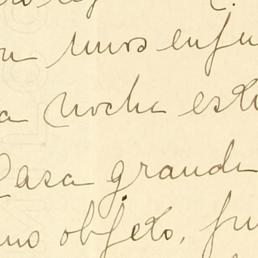 unos enfu
a noche est
Casa grande
uno objeto, fu